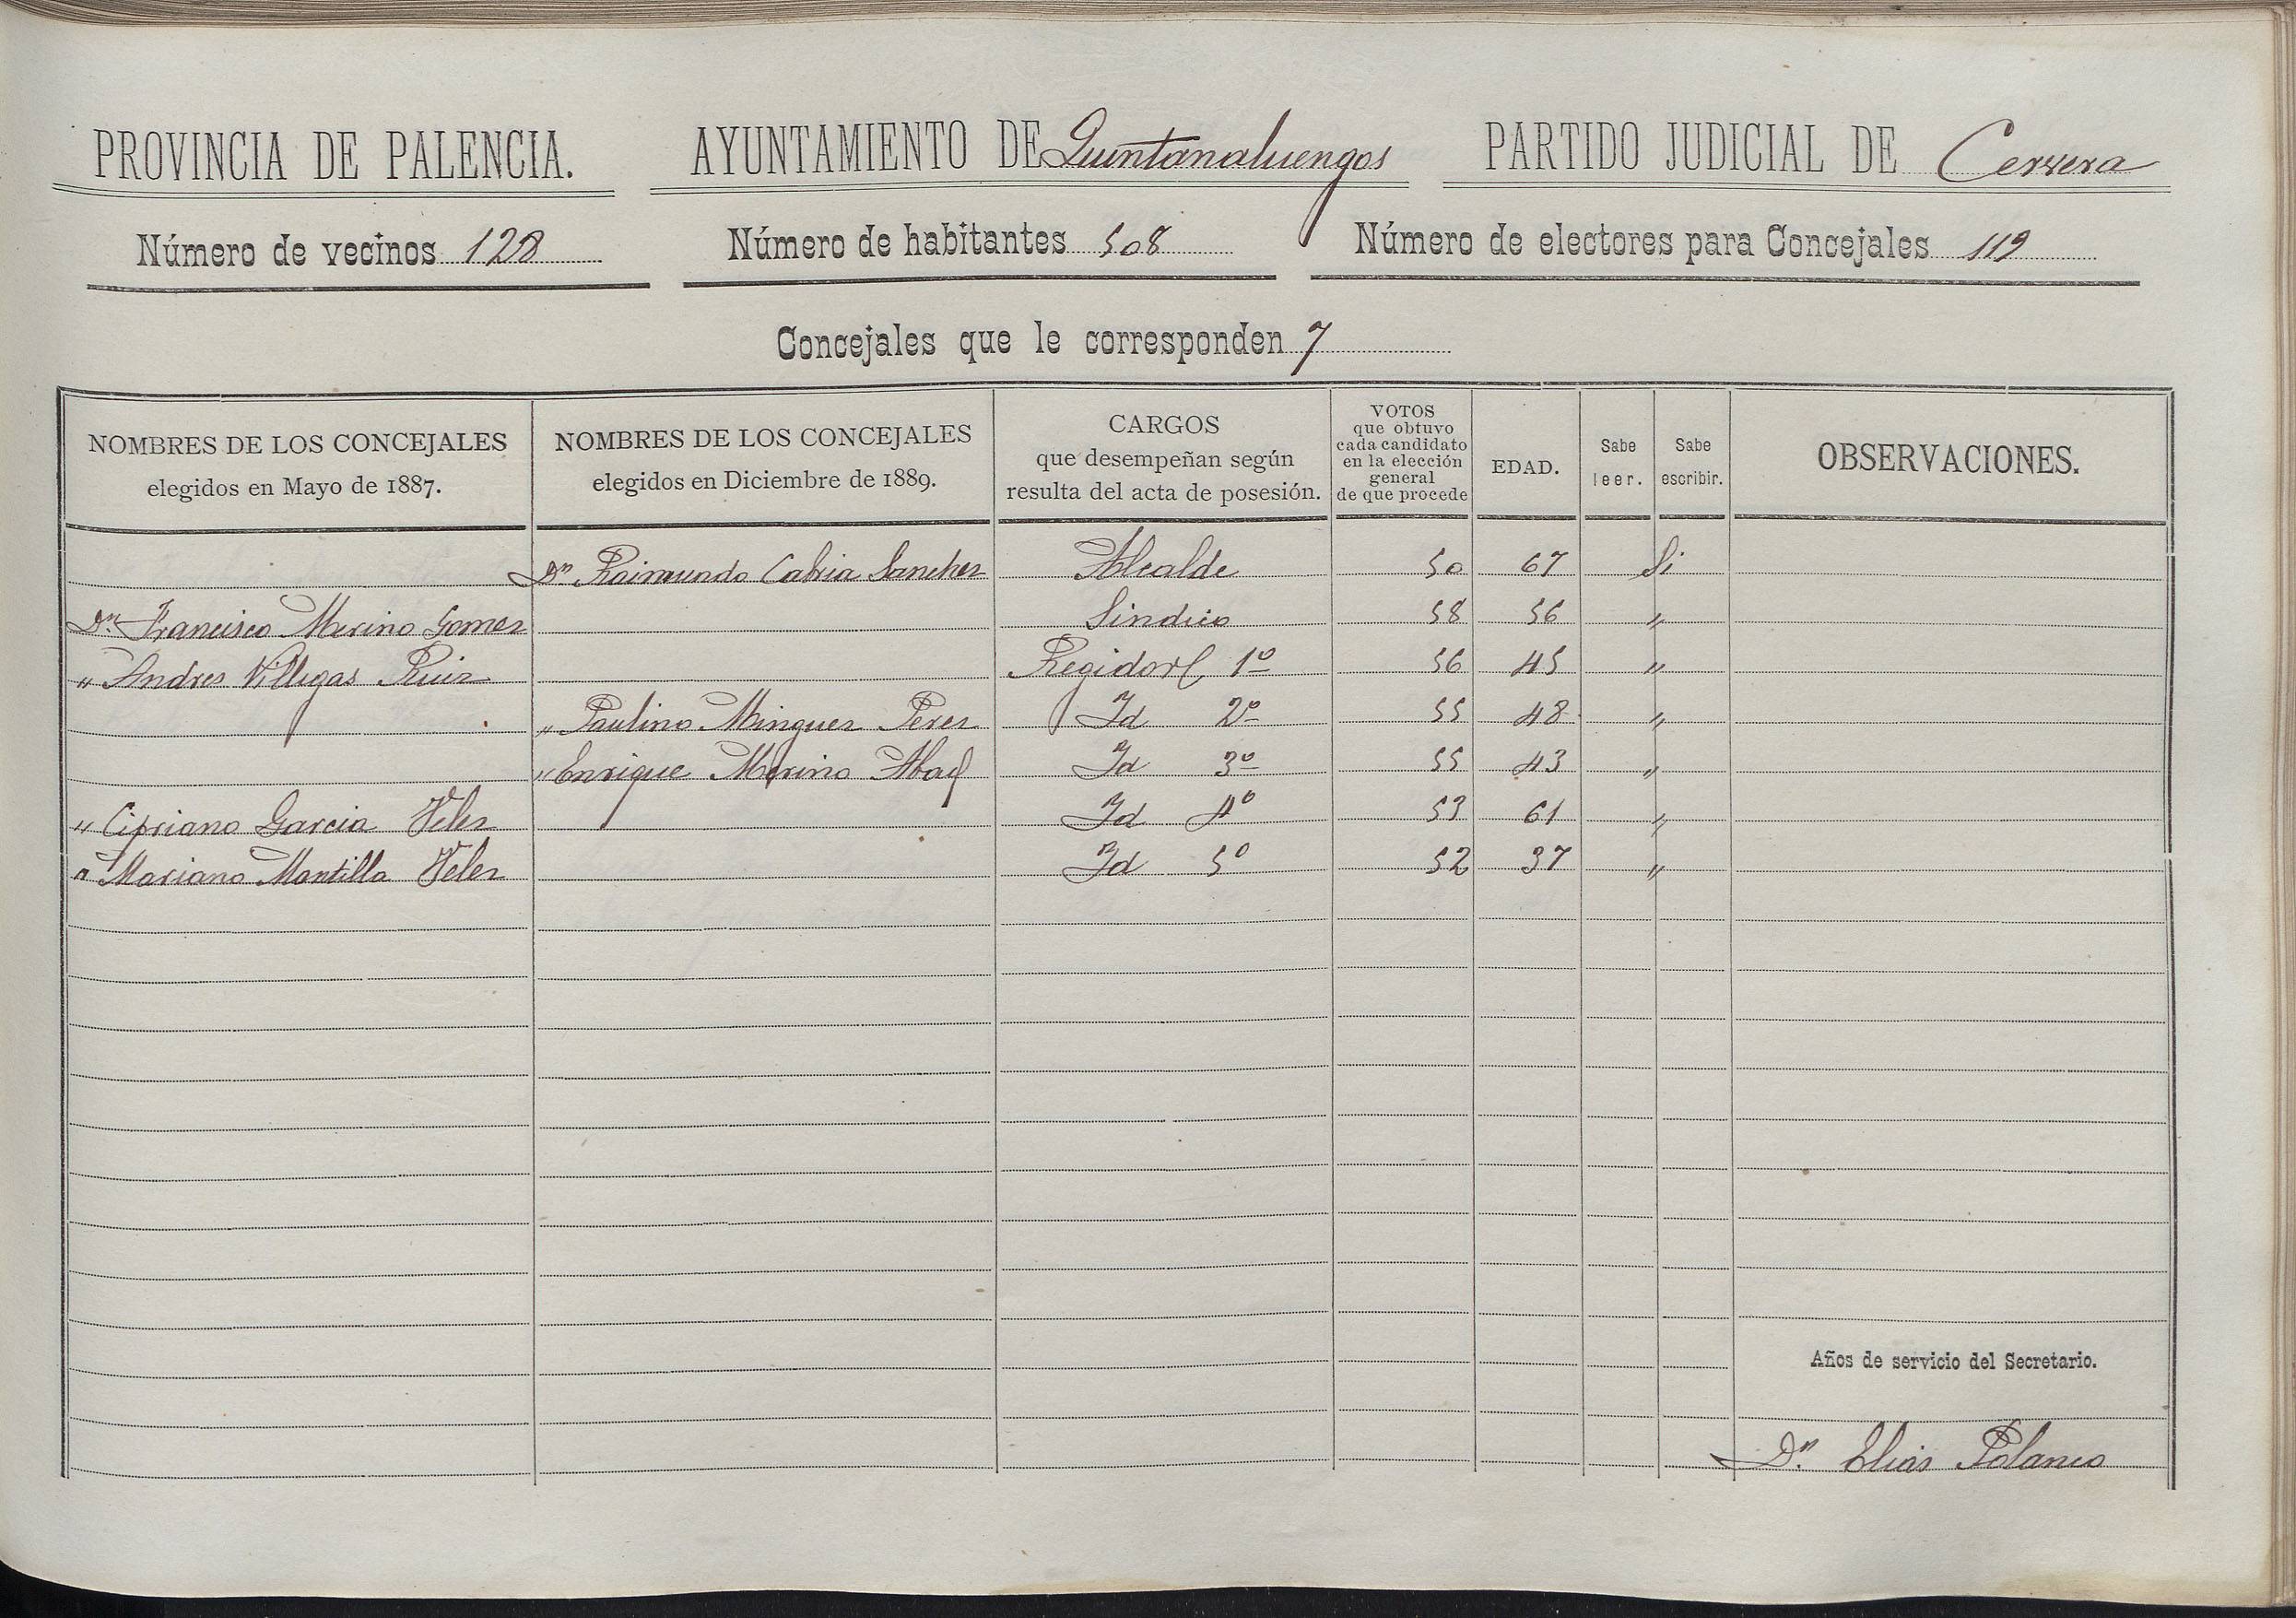 PROVINCIA DE PALENCIA. AYUNTAMIENTO DE Quintanaluengos PARTIDO JUDICIAL DE Cervera
Número de vecinos 128 Número de habitantes 508 Número de electores para Concejales 119
Concejales que le corresponden 7
NOMBRES DE LOS CONCEJALES elegidos en Mayo de 1887. NOMBRES DE LOS CONCEJALES elegidos en Diciembre de 1889. CARGOS que desempeñan según resulta del acta de posesión. VOTOS que obtuvo cada candidato en la elección general de que procede EDAD. Sabe leer. Sabe escribir. OBSERVACIONES.
Dn Raimundo Cabria Sanchez Alcalde 50 67 Si
Dn. Francisco Merino Gomez Sindico 58 56 "
" Andres Villegas Ruiz Regidor 1º 56 45 "
" Paulino Minguez Perez Id 2º 55 48 "
" Enrique Merino Abad Id 3º 55 43 "
" Cipriano Garcia Velez Id 4º 53 61 "
" Mariano Mantilla Velez Id 5º 52 37 "
Años de servicio del Secretario.
Dn. Elias Polanco